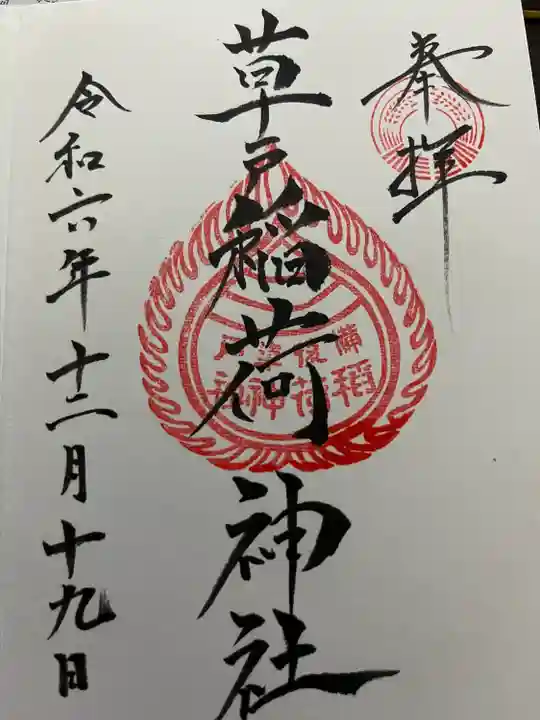 奉拝
草戸稲荷神社
備後草戸
稲荷神社
令和六年十二月十九日